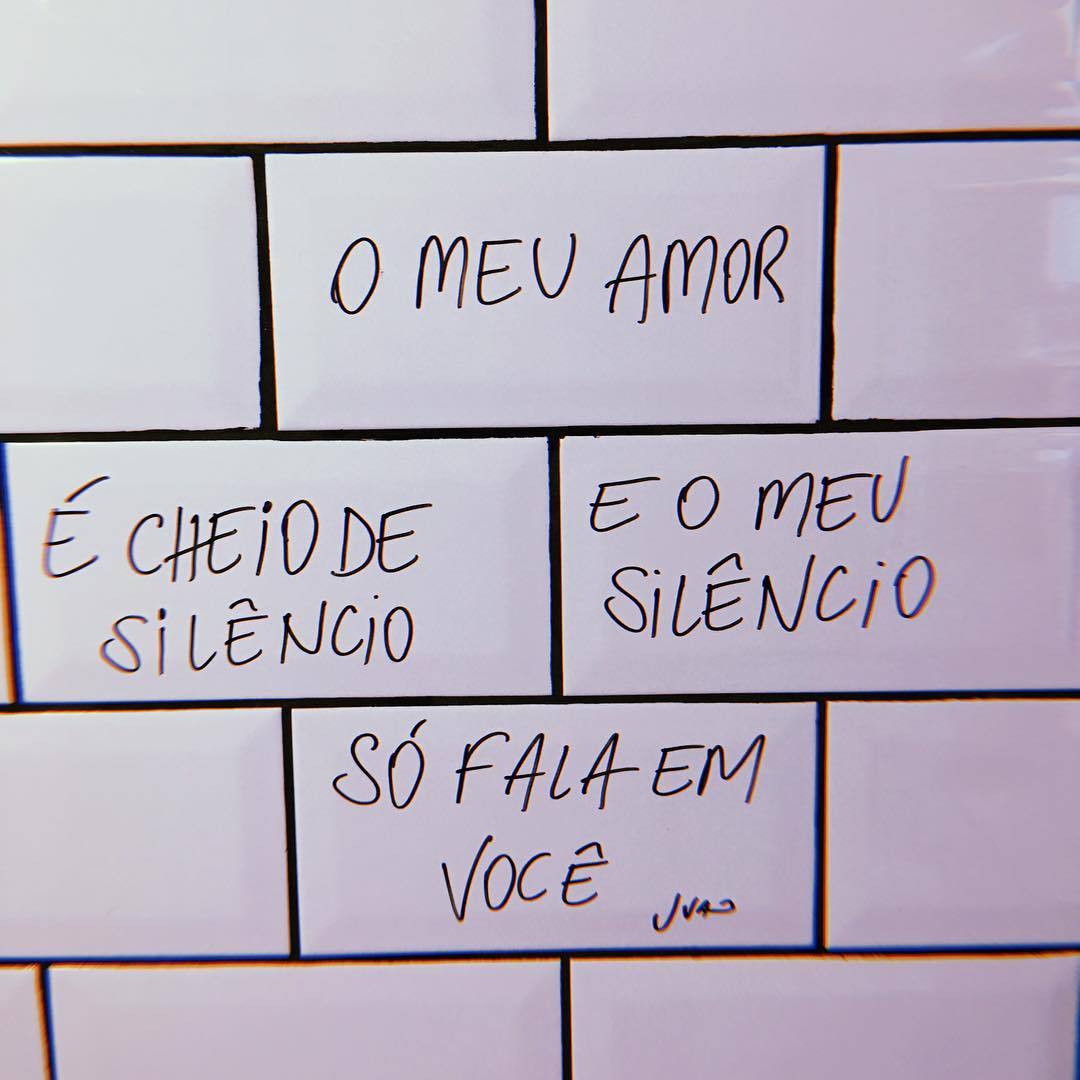 O MEU AMOR
É CHEIO DE
SILÊNCIO
E O MEU
SILÊNCIO
SÓ FALA EM
VOCÊ